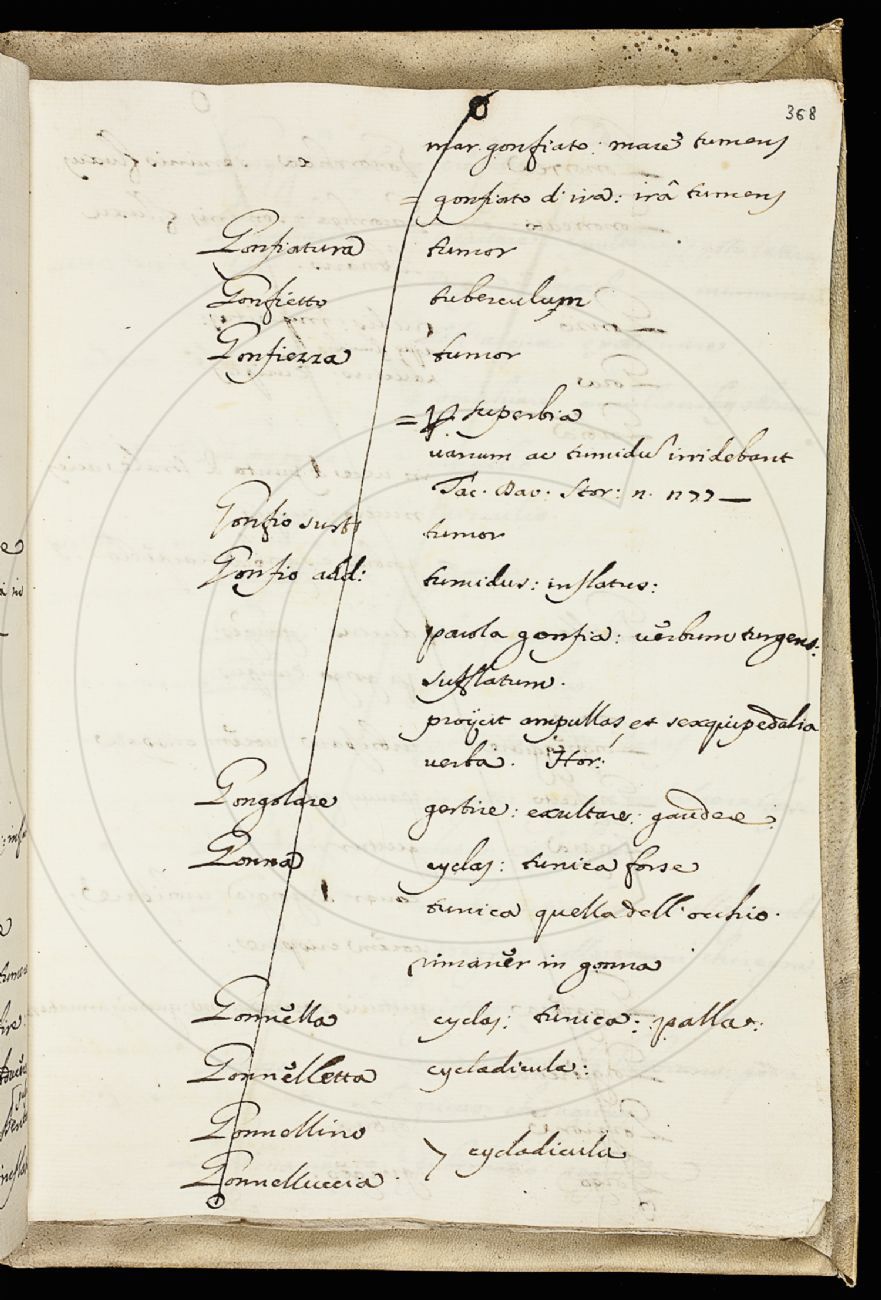 368
mar gonfiato: mare tumens
= gonfiato d'ira: irâ tumens
Gonfiatura tumor
Gonfietto tuberculum
Gonfiezza tumor
= p. superbia
uanum ac tumidu irridebant
Tac. Dav. Stor: n.
Gonfio sust: tumor
Gonfio add: tumidus: inflatus:
parola gonfia: verbum turgens:
sufflatum.
proijcit ampullas, et sexquipedalia
verba. Hor:
Gongolare gestire: exultare: gaudere:
Gonna cyclas: tunica forse
tunica quella dell'occhio.
rimaner in gonna
Gonnella cyclas: tunica: palla:
Gonnelletta cycladicula:
Gonnellino
Gonnelluccia cycladicula